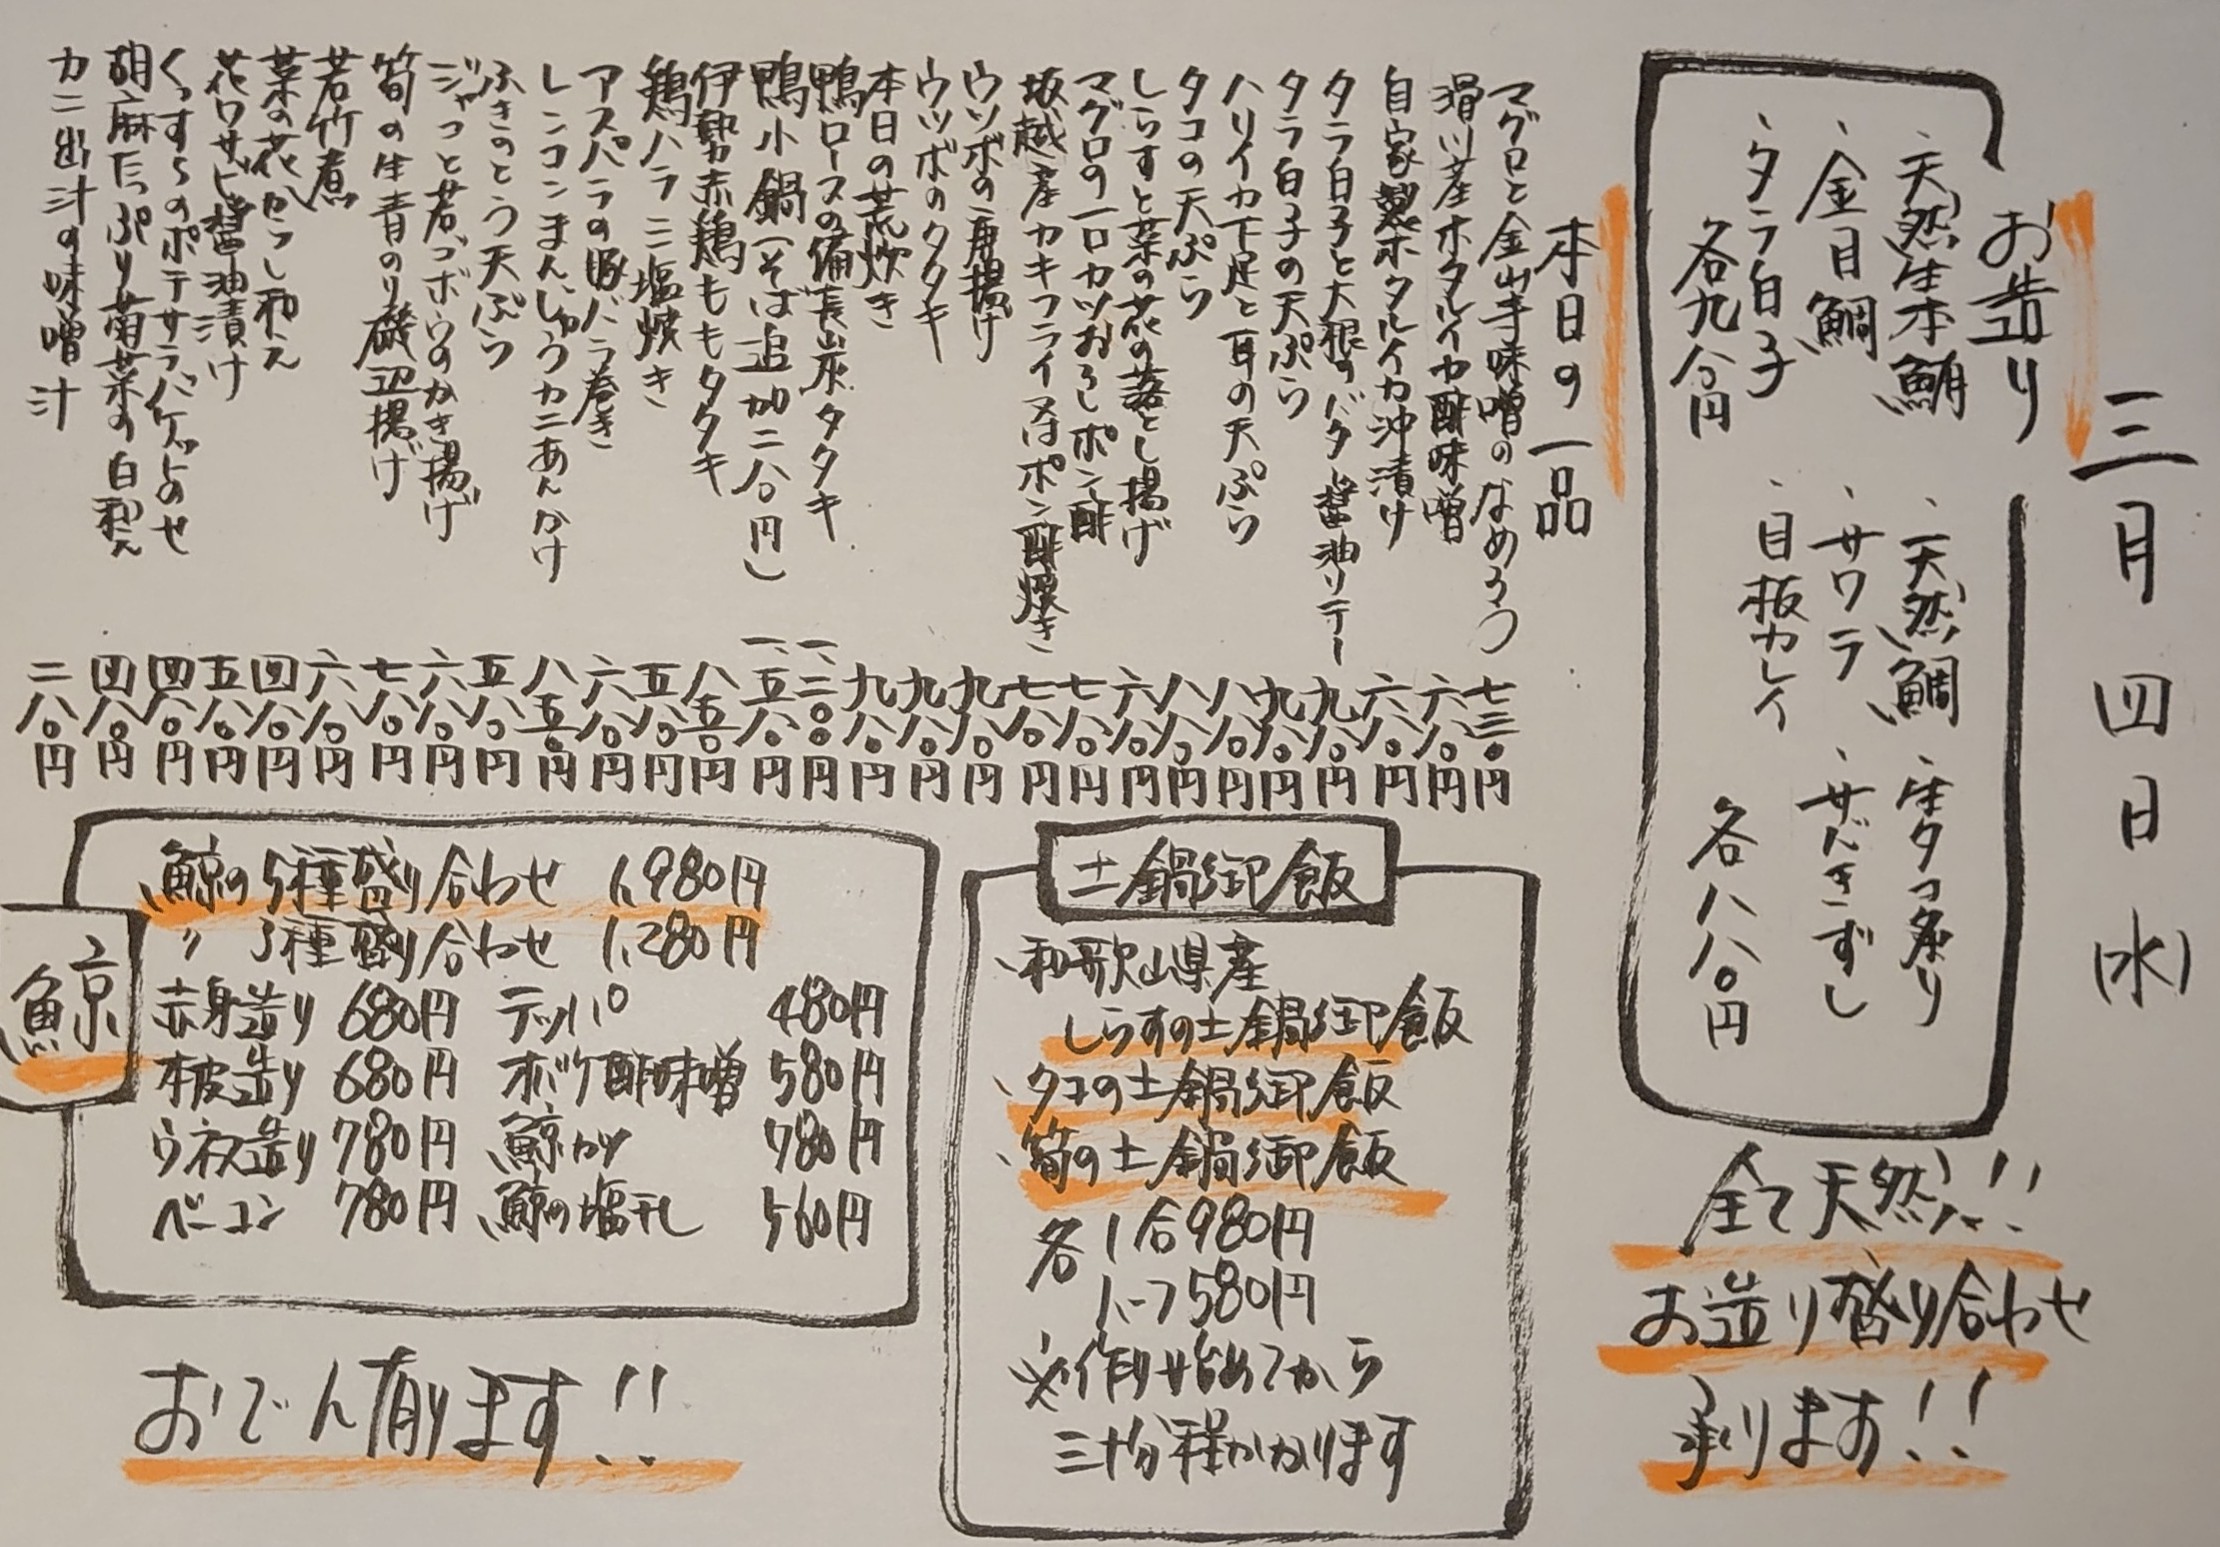 三月四日(水)
お造り
・天然生本鮪
・金目鯛
・タラ白子
各九八〇円
・天然鯛
・サワラ
・目板カレイ
・生タコ炙り
・サバきずし
各八八〇円
全て天然!!
お造り盛り合わせ
承ります!!
本日の一品
マグロと金山寺味噌のなめろう 七三〇円
滑川産ホタルイカ酢味噌 六八〇円
自家製ホタルイカ沖漬け 六八〇円
タラ白子と大根のバター醤油ソテー 九八〇円
タラ白子の天ぷら 九八〇円
ハリイカ下足と耳の天ぷら 八八〇円
タコの天ぷら 八八〇円
しらすと菜の花の落とし揚げ 六八〇円
マグロの一口カツおろしポン酢 七八〇円
坂越産カキフライ又はポン酢焼き 七八〇円
ウツボの唐揚げ 九八〇円
ウツボのタタキ 九八〇円
本日の荒炊き 九八〇円
鴨ロースの備長炭タタキ 一、二〇〇円
鴨小鍋(そば追加二八〇円) 一、五八〇円
伊勢赤鶏ももタタキ 八五〇円
鶏ハラミ塩焼き 五八〇円
アスパラの豚バラ巻き 六八〇円
レンコンまんじゅうカニあんかけ 八五〇円
ふきのとう天ぷら 五八〇円
ジャコと若ゴボウのかき揚げ 六八〇円
筍の生青のり磯辺揚げ 七八〇円
若竹煮 六八〇円
菜の花からし和え 四八〇円
花ワサビ醤油漬け 五八〇円
くっすらのポテサラバゲットのせ 四八〇円
胡麻たっぷり菊菜の白和え 四八〇円
カニ出汁の味噌汁 二八〇円
土鍋御飯
・和歌山県産
しらすの土鍋御飯
・タコの土鍋御飯
・筍の土鍋御飯
各 1合980円
ハーフ580円
※作り始めてから
三十分程かかります
鯨
鯨の5種盛り合わせ 1,980円
〃 3種盛り合わせ 1,280円
赤身造り 680円 テッパ 480円
本皮造り 680円 オバケ酢味噌 580円
ウネス造り 780円 鯨カツ 780円
ベーコン 780円 鯨の塩干し 560円
おでん有ります!!